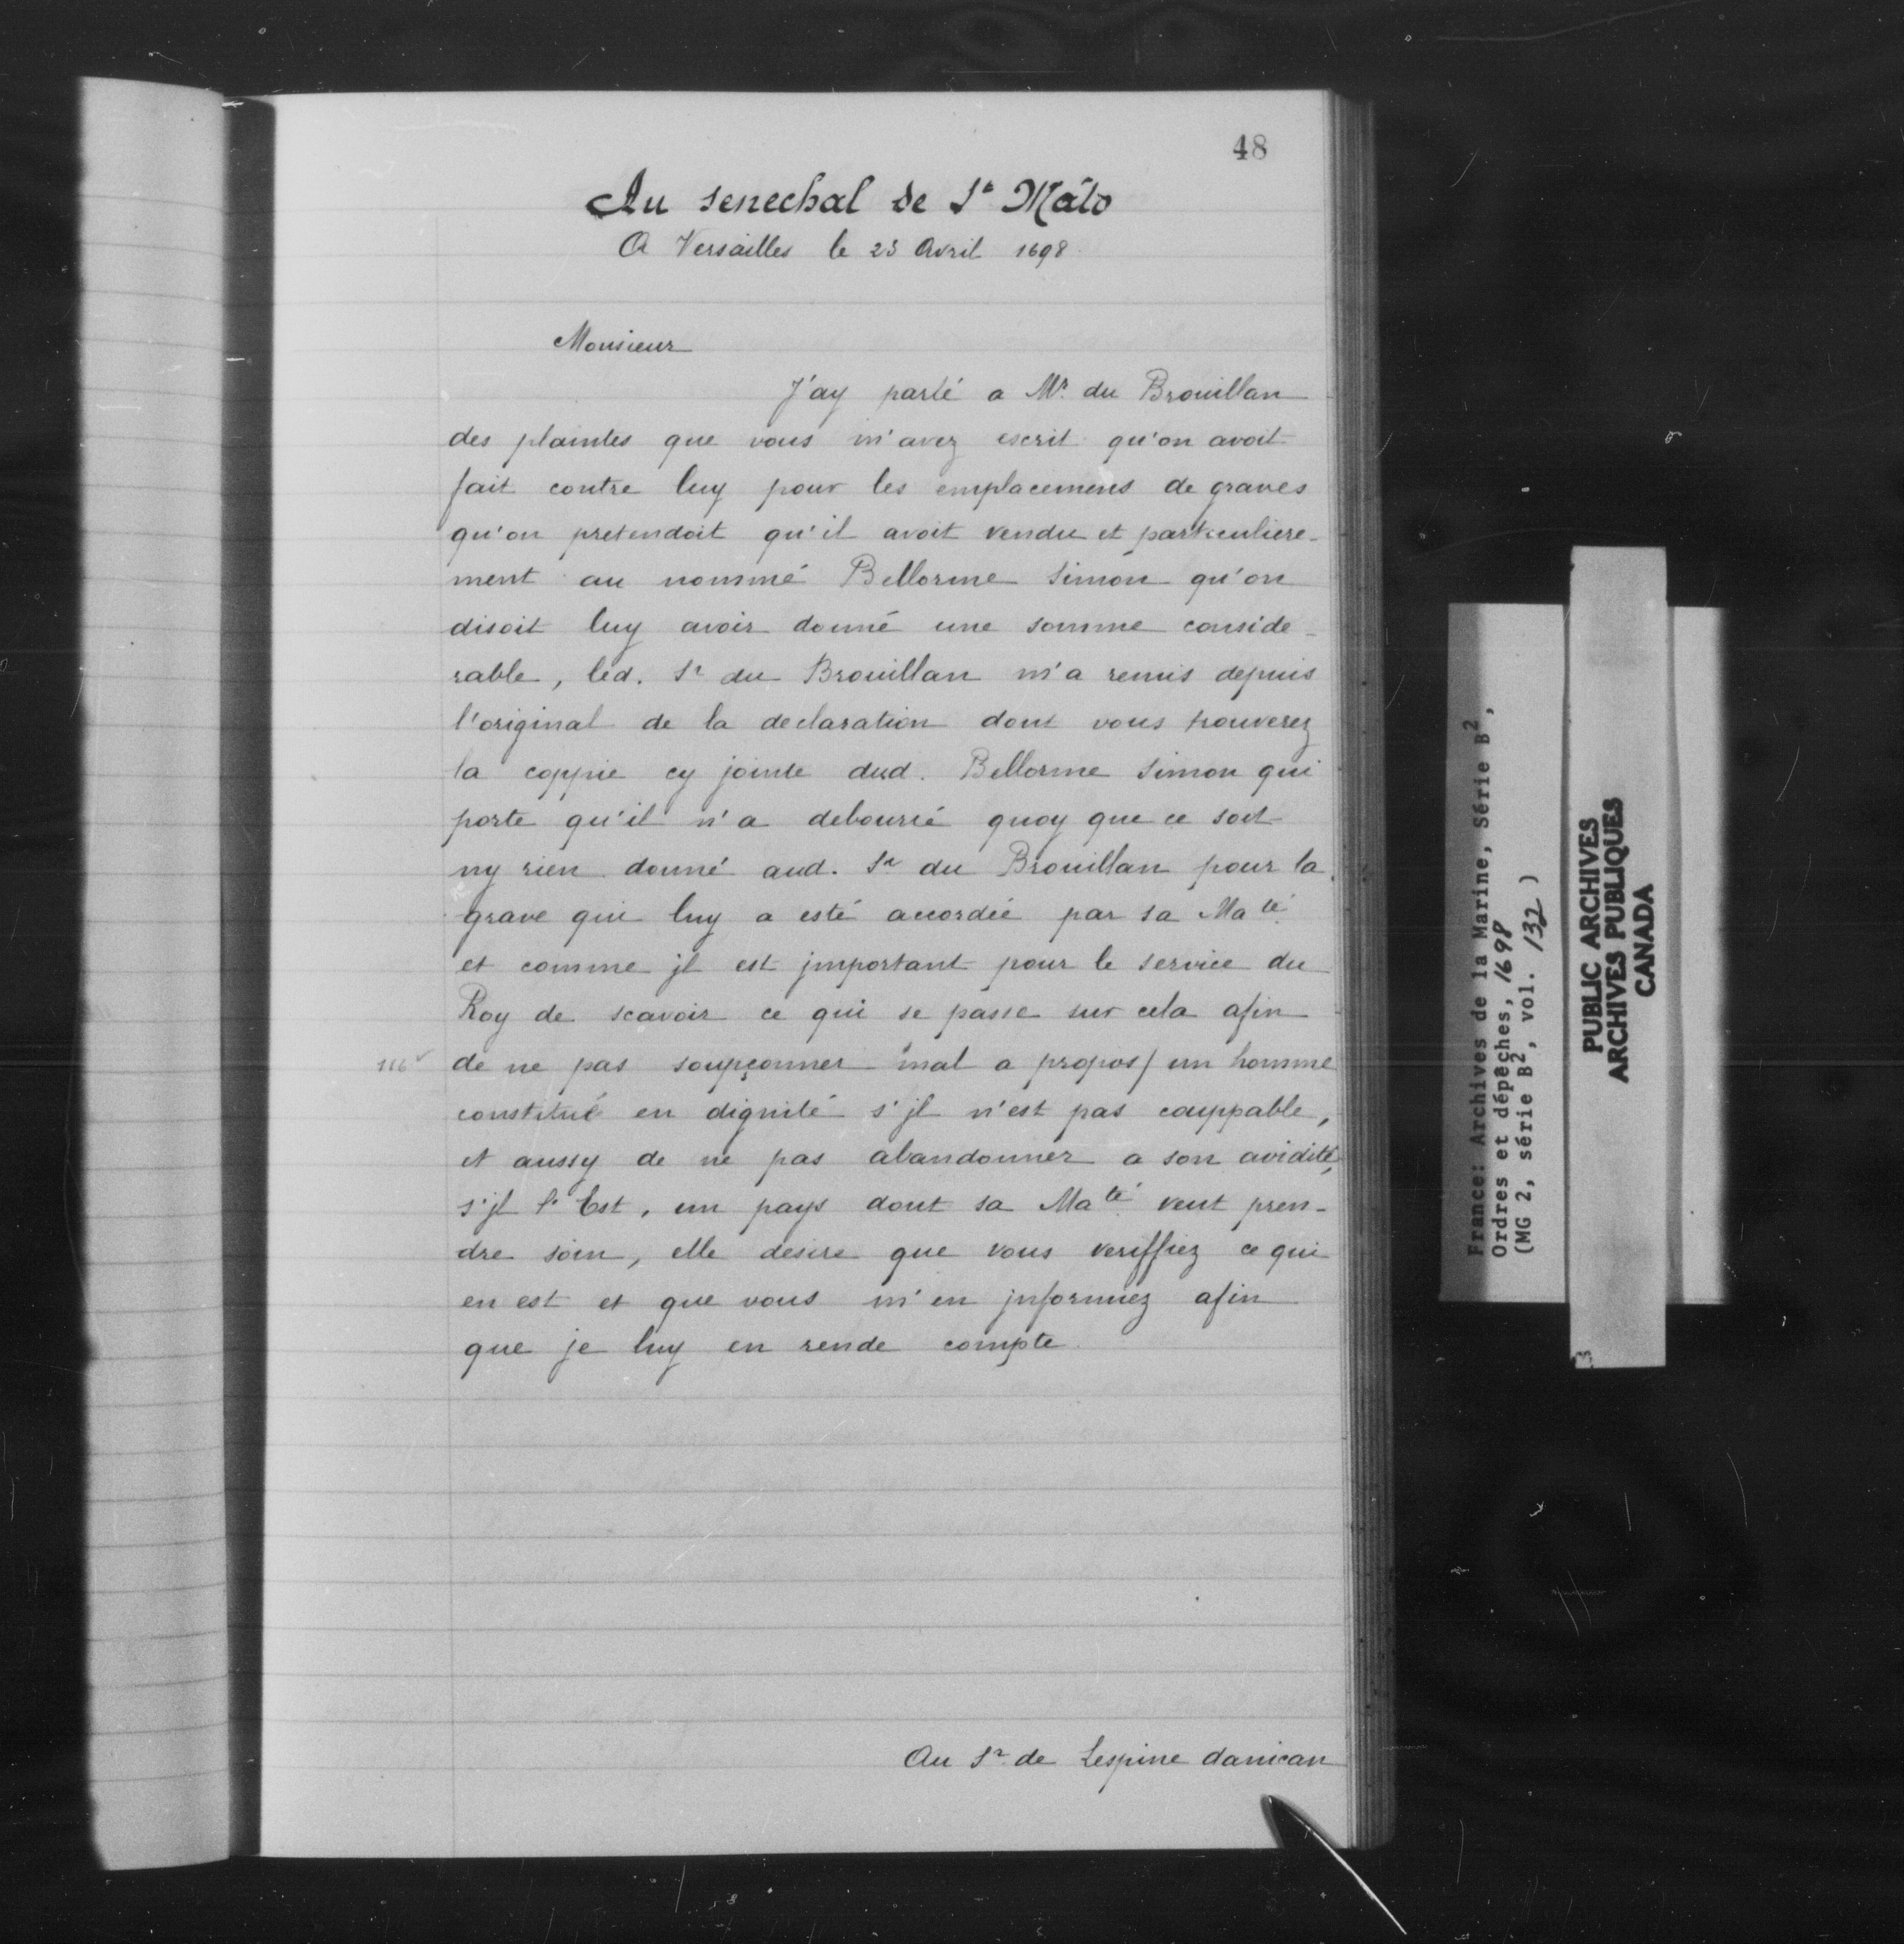 48
Au senechal de St Malo
A Versailles le 23 Avril 1698
Monsieur
J'ay parlé a Mr. du Brouillan
des plaintes que vous m'avez escrit qu'on avoit
fait contre luy pour les emplacemens de graves
qu'on pretendoit qu'il avoit vendu et particuliere-
ment au nommé Bellorme Simon qu'on
disoit luy avoir donné une somme conside-
rable, led. Sr du Brouillan m'a remis depuis
l'original de la declaration dont vous trouverez
la coppie cy jointe dud. Bellorme Simon qui
porte qu'il n'a deboursé quoy que ce soit
ny rien donné aud. Sr du Brouillan pour la
grave qui luy a esté accordée par sa Maté
et comme jl est jmportant pour le service du
Roy de scavoir ce qui se passe sur cela afin
116v de ne pas soupçonner mal a propos/ un homme
constitué en dignité s'jl n'est pas couppable,
et aussy de ne pas abandonner a son avidité,
s'jl l'Est, un pays dont sa Maté veut pren-
dre soin, elle desire que vous veriffiez ce qui
en est et que vous m'en jnformiez afin
que je luy en rende compte.
Au Sr. de Lespine danican
France: Archives de la Marine, Série B2,
Ordres et dépêches, 1698
(MG 2, série B2, vol. 132)
PUBLIC ARCHIVES
ARCHIVES PUBLIQUES
CANADA